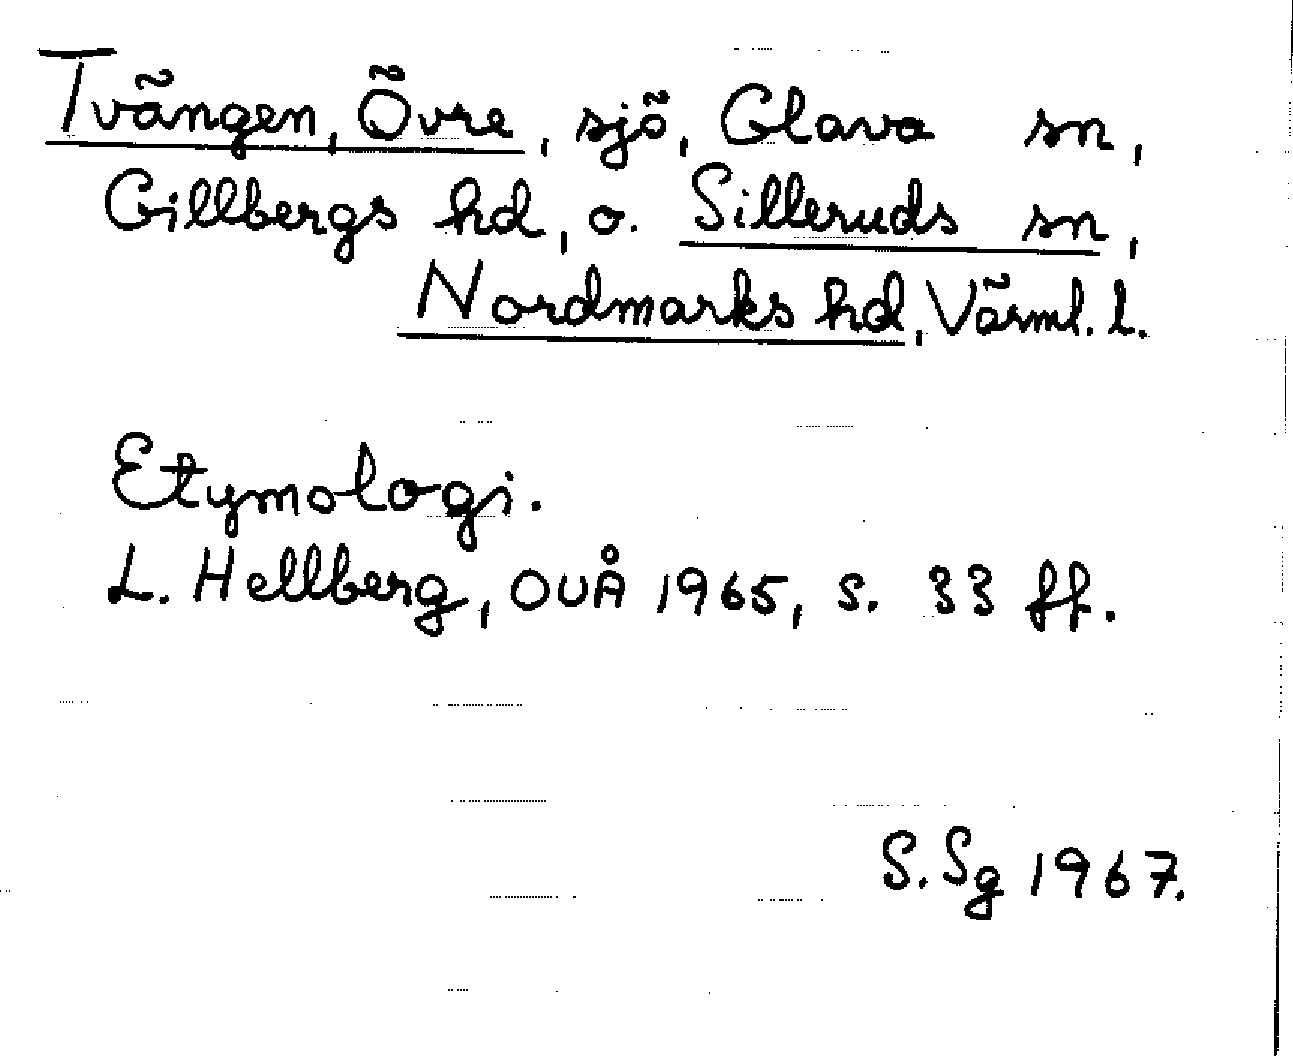 Tvängen, Övre, sjö, Glava sn,
Gillbergs hd, o. Silleruds sn,
Nordmarks hd, Värml. l.
Etymologi.
L. Hellberg, OUÅ 1965, s. 33 ff.
S. Sg 1967.